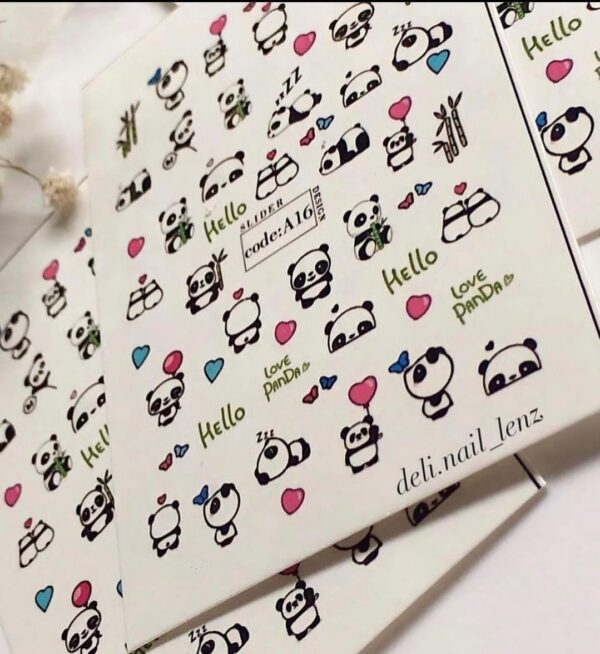 Hello
zzz
zzZ
Hello
SLIDER
DESIGN
code:A16
Hello
LOVE
PANDA
LOVE
PANDA
Hello
zzz
deli.nail_lenz
Hel
zzz